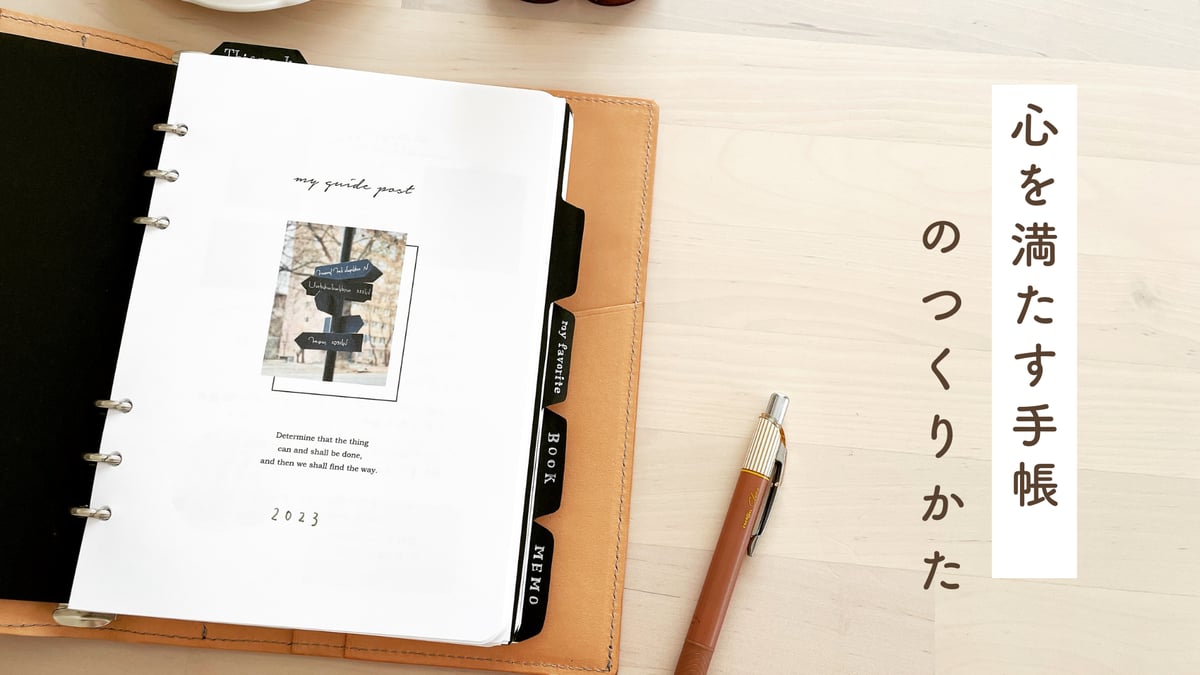 心を満たす手帳
のつくりかた
my guide post
Determine that the thing
can and shall be done,
and then we shall find the way.
2023
my favorite
BOOK
MEMO